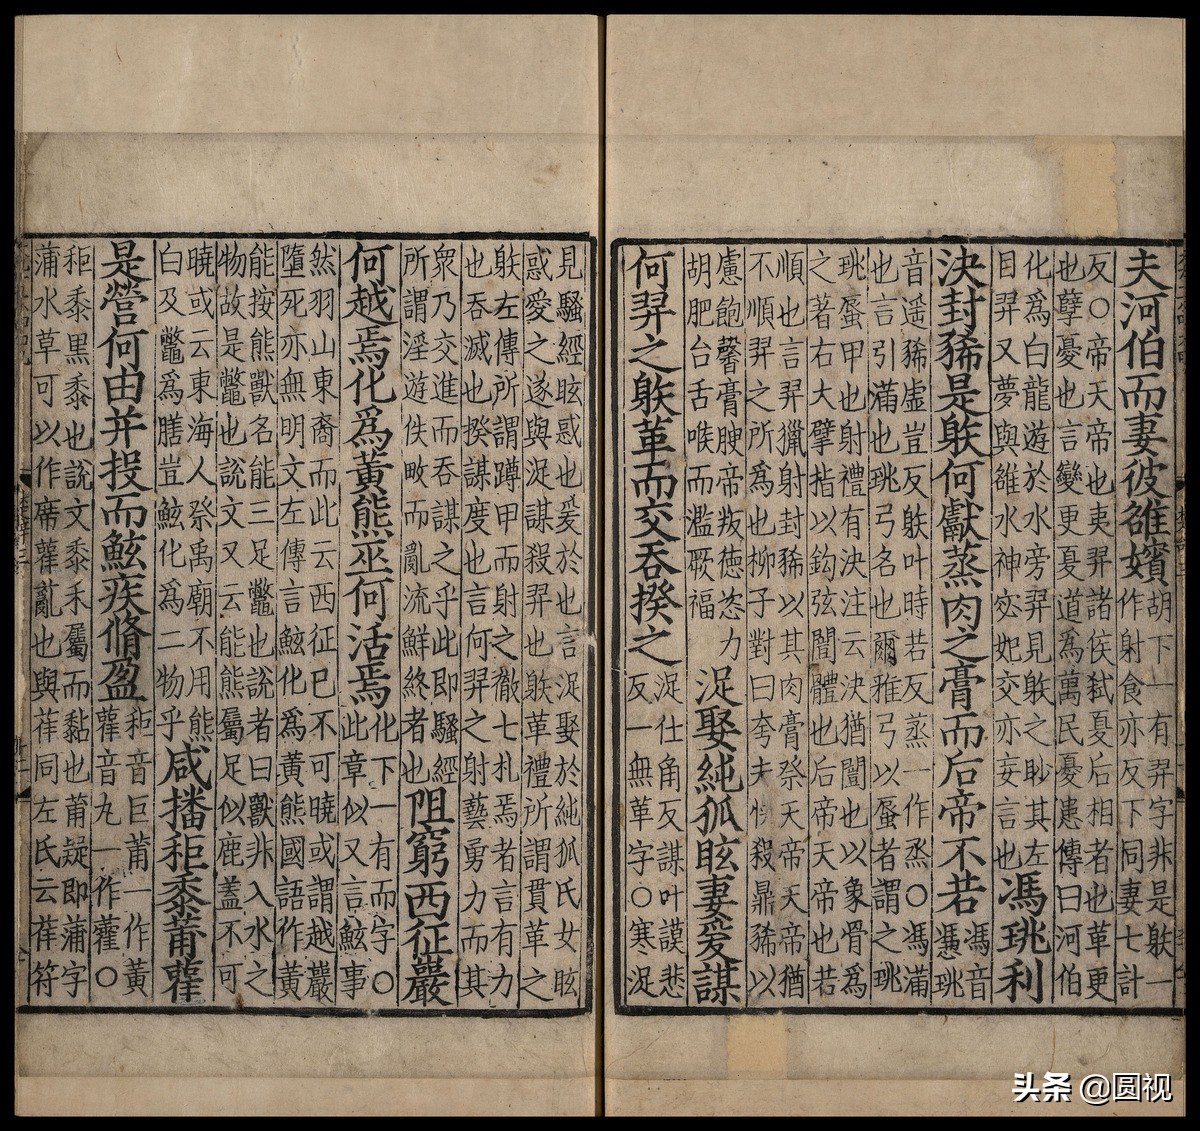 夫河伯而妻彼雒嬪
胡下一有羿字非是躲一
作射食亦反下同妻七計
反○帝天帝也夷羿諸侯弑夏后相者也革更
也孽憂也言變更夏道為萬民憂患傳曰河伯
化為白龍遊於水旁羿見躲之眇其左
目羿又夢與雒水神宓妃交亦妄言也
馮珧利
決封豨是躲何獻蒸肉之膏而后帝不若
馮音
憑珧
音遥豨虛豈反躲叶時若反蒸一作烝○馮滿
也言引滿也珧弓名也爾雅弓以蜃者謂之珧
珧蜃甲也射禮有決注云決猶闓也以象骨為
之著右大擘指以鈎弦闓體也后帝天帝也若
順也言羿獵射封豨以其肉膏祭天帝天帝猶
不順羿之所為也柳子對曰夸夫快殺鼎豨以
慮飽馨膏腴帝叛德恣力
胡肥台舌喉而濫厥福
浞娶純狐眩妻爰謀
何羿之躲革而交吞揆之
浞仕角反謀叶謨悲
反一無革字○寒浞
見騷經眩惑也爰於也言浞娶於純狐氏女眩
惑愛之遂與浞謀殺羿也躲革禮所謂貫革之
躲左傳所謂蹲甲而射之徹七札焉者言有力
也吞滅也揆謀度也言何羿之射藝勇力而其
眾乃交進而吞謀之乎此即騷經
所謂淫遊佚畋而亂流鮮終者也
阻窮西征巖
何越焉化為黃熊巫何活焉
化下一有而字○
此章似又言鮌事
然羽山東裔而此云西征已不可曉或謂越巖
墮死亦無明文左傳言鮌化為黃熊國語作黃
能按熊獸名能三足鼈也說者曰獸非入水之
物故是鼈也說文又云能熊屬足似鹿蓋不可
曉或云東海人祭禹廟不用熊
白及鼈為膳豈鮌化為二物乎
咸播秬黍莆雚
是營何由并投而鮌疾脩盈
秬音巨莆一作黃
雚音丸一作藿○
秬黍黑黍也說文黍禾屬而黏也莆疑即蒲字
蒲水草可以作席雚薍也與萑同左氏云萑苻
头条 @圆视